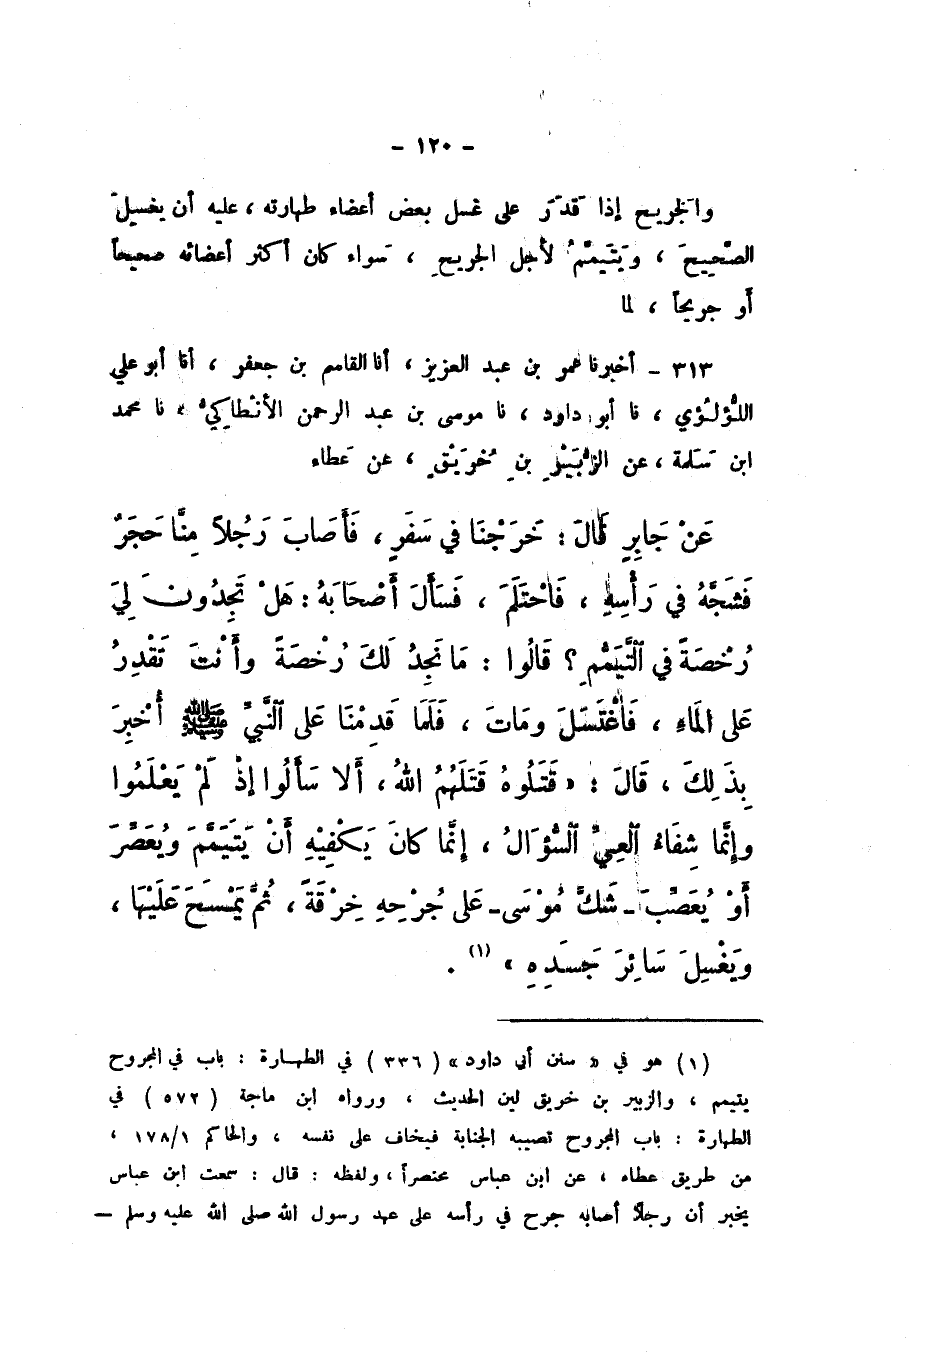 - ١٢٠ -
والجَريح إذا قدَرَ على غسل بعض أعضاء طهارته ، عليه أن يغسِلَ
الصَّحِيحَ ، ويَتَيمَّمُ لأجل الجريحِ ، سَواء كان أكثر أعضائه صحيحاً
أو جريحاً ، لما
٣١٣ ـ أخبرنا عمر بن عبد العزيز ، أنا القاسم بن جعفر ، أنا أبو علي
اللُّؤلُؤي ، نا أبو داود ، نا موسى بن عبد الرحمن الأنْطاكِيُّ ، نا محمد
ابن سَلَمة ، عن الزُّبَيْرِ بنِ خُرَيْقٍ ، عن عَطاء
عَنْ جَابِرٍ قَالَ : خَرَجْنَا في سَفَرٍ ، فَأَصَابَ رَجُلاً مِنَّا حَجَرٌ
فَشَجَّهُ في رَأْسِهِ ، فَاحْتَلَمَ ، فَسَأَلَ أَصْحَابَهُ : هَلْ تَجِدُونَ لِيَ
رُخْصَةً في التَّيَمُّمِ ؟ قَالُوا : مَا نَجِدُ لَكَ رُخْصَةً وأَنْتَ تَقْدِرُ
عَلى المَاءِ ، فَاغْتَسَلَ ومَاتَ ، فَلَمَا قَدِمْنَا عَلى النَّبيِّ ﷺ أُخْبِرَ
بِذَلِكَ ، قَالَ : « قَتَلُوهُ قَتَلَهُمُ اللهُ ، أَلا سَأَلُوا إذْ لَمْ يَعْلَمُوا
وإنَّما شِفَاءُ العِيِّ السُّؤَالُ ، إنَّما كَانَ يَكْفِيْهِ أَنْ يَتَيَمَّمَ ويُعَصِّرَ
أَوْ يُعَصِّبَ ـ شَكَّ مُوْسَى ـ عَلى جُرْحِهِ خِرْقَةً ، ثُمَّ يَمْسَحَ عَلَيْهَا ،
ويَغْسِلَ سَائِرَ جَسَدِهِ » (١) .
(١) هو في « سنن أبي داود » ( ٣٣٦ ) في الطهارة : باب في المجروح
يتيمم ، والزبير بن خريق لين الحديث ، ورواه ابن ماجة ( ٥٧٢ ) في
الطهارة : باب المجروح تصيبه الجنابة فيخاف على نفسه ، والحاكم ١٧٨/١ ،
من طريق عطاء ، عن ابن عباس مختصراً ، ولفظه : قال : سمعت ابن عباس
يخبر أن رجلاً أصابه جرح في رأسه على عهد رسول الله صلى الله عليه وسلم —